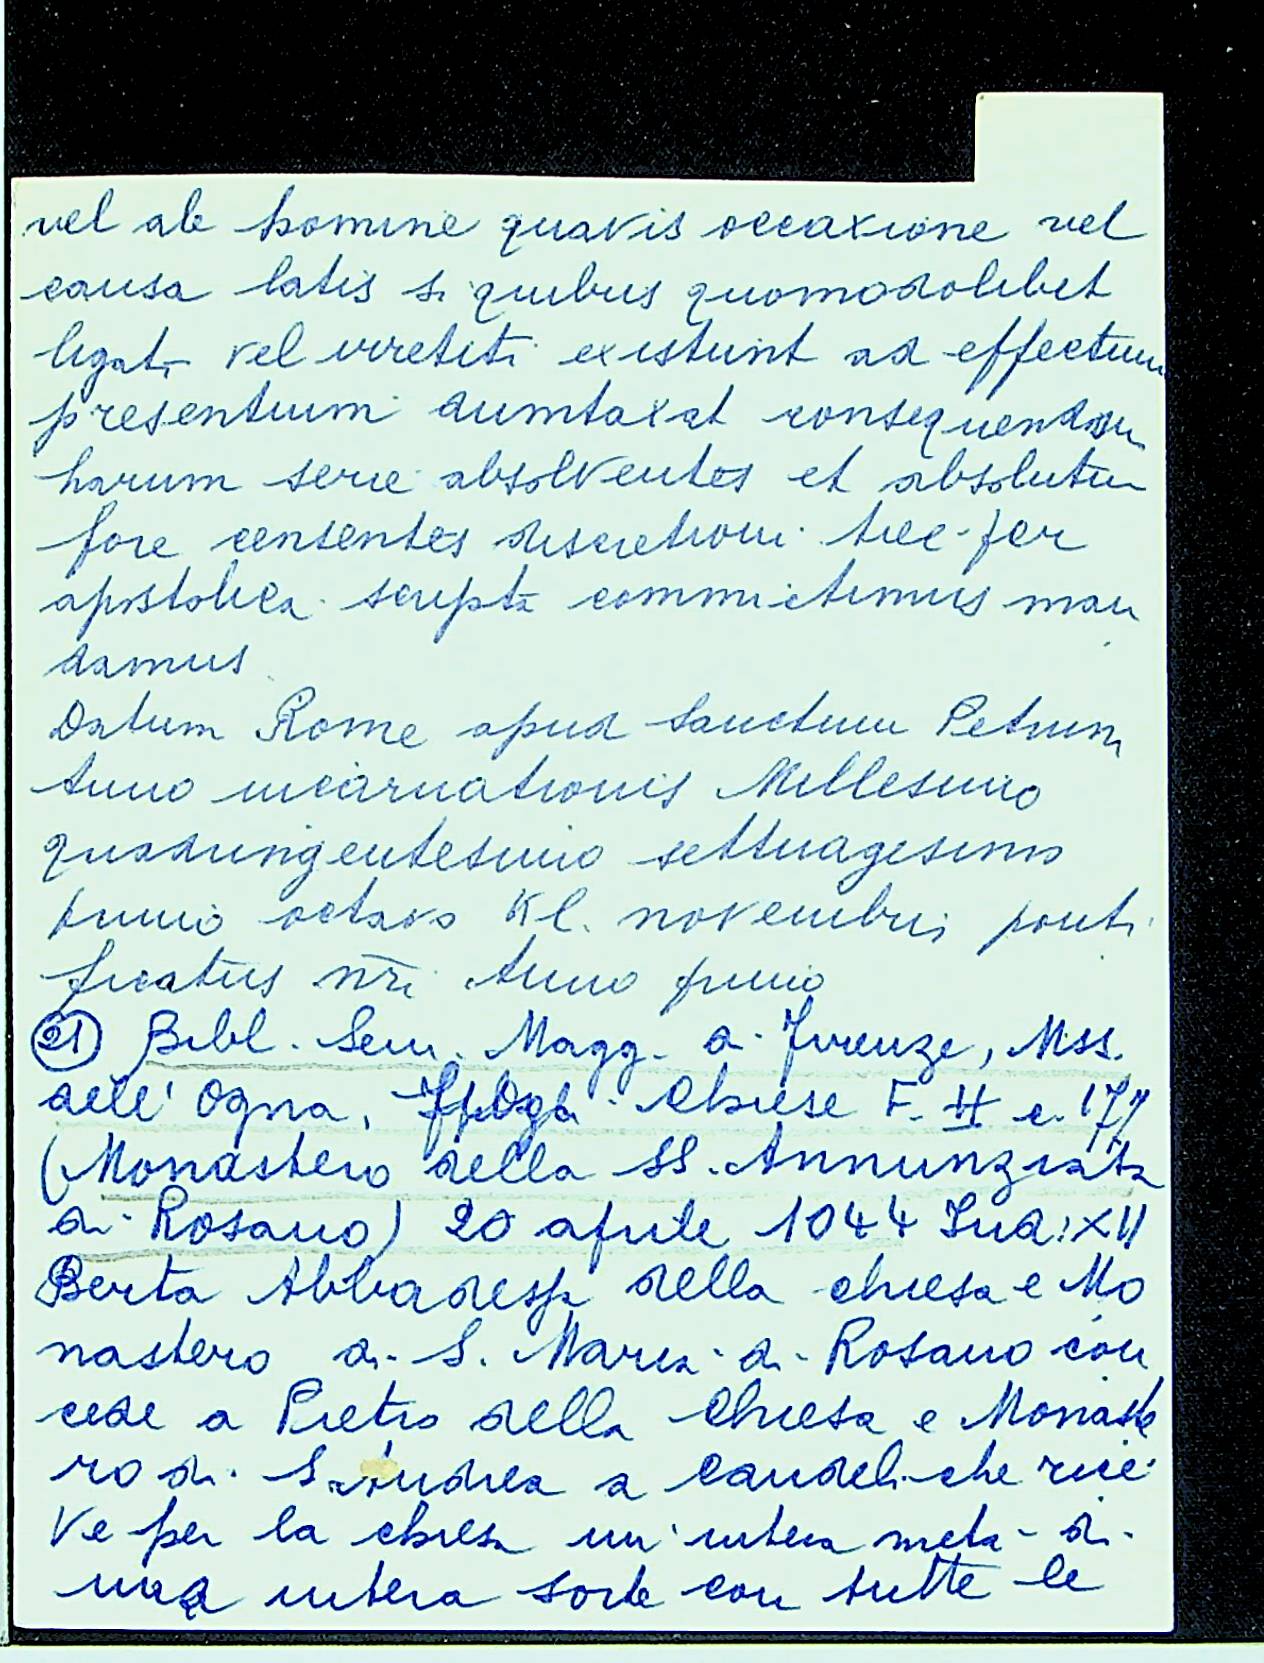 vel ab homine quavis occaxione vel
causa latis si quibus quomodolibet
ligati vel irretiti existunt ad effectum
presentium dumtaxat consequendum
harum serie absolventes et absolutum
fore censentes discretioni tue per
apostolica scripta commictimus man
damus
Datum Rome apud Sanctum Petrum
Anno incarnationis Millesimo
quadringentesimo settuagesimo
primo octavo Kl. novembris ponti
ficatus nr̄i Anno primo
(21) Bibl. Sem. Magg. di Firenze, Mss.
dell' Ogna, Chiese F. II c. 177
(Monastero della SS. Annunziata
di Rosano) 20 aprile 1044 Ind. XII
Berta Abbadessa della chiesa e Mo
nastero di S. Maria di Rosano con
cede a Pietro della Chiesa e Monaste
ro di S. Andrea a Candeli che rice
ve per la chiesa un'intera metà di
una intera sorte con tutte le